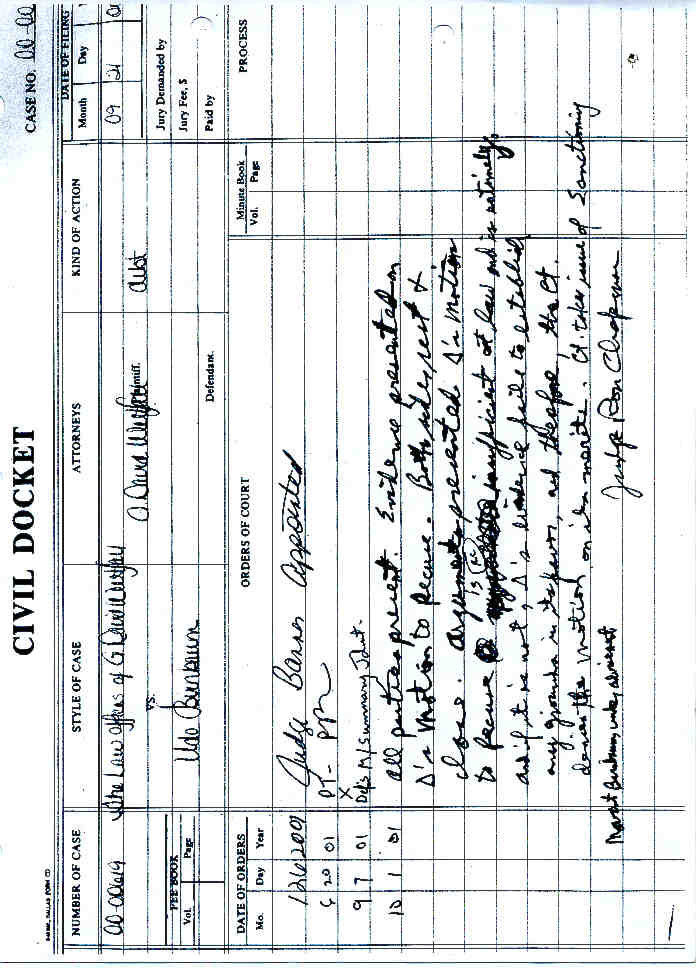 CIVIL DOCKET
CASE NO. 00-00
NUMBER OF CASE
STYLE OF CASE
ATTORNEYS
KIND OF ACTION
DATE OF FILING
Month Day
00-00619
The Law Offices of G. David Westfall
vs.
Udo Birnbaum
G. David Westfall
Plaintiff.
Defendant.
debt
09 21 0
Jury Demanded by
Jury Fee, $
Paid by
FEE BOOK
Vol. Page
DATE OF ORDERS
Mo. Day Year
ORDERS OF COURT
Minute Book
Vol. Page
PROCESS
Judge Banner Appointed
6 20 01 PT-
9 7 01 Def's M/Summary Jdmt.
10 1 01 all parties present. Evidence presented on
Δ's Motion to Recuse. Both sides rest &
close. Arguments presented. Δ's Motion
to Recuse is insufficient at law and is untimely,
and if it is not, Δ's evidence fails to establish
any grounds in its favor, and therefore, the Ct.
denies the motion on its merits. Ct. takes issue of Sanctioning
under advisement
Judge Ron Chapman